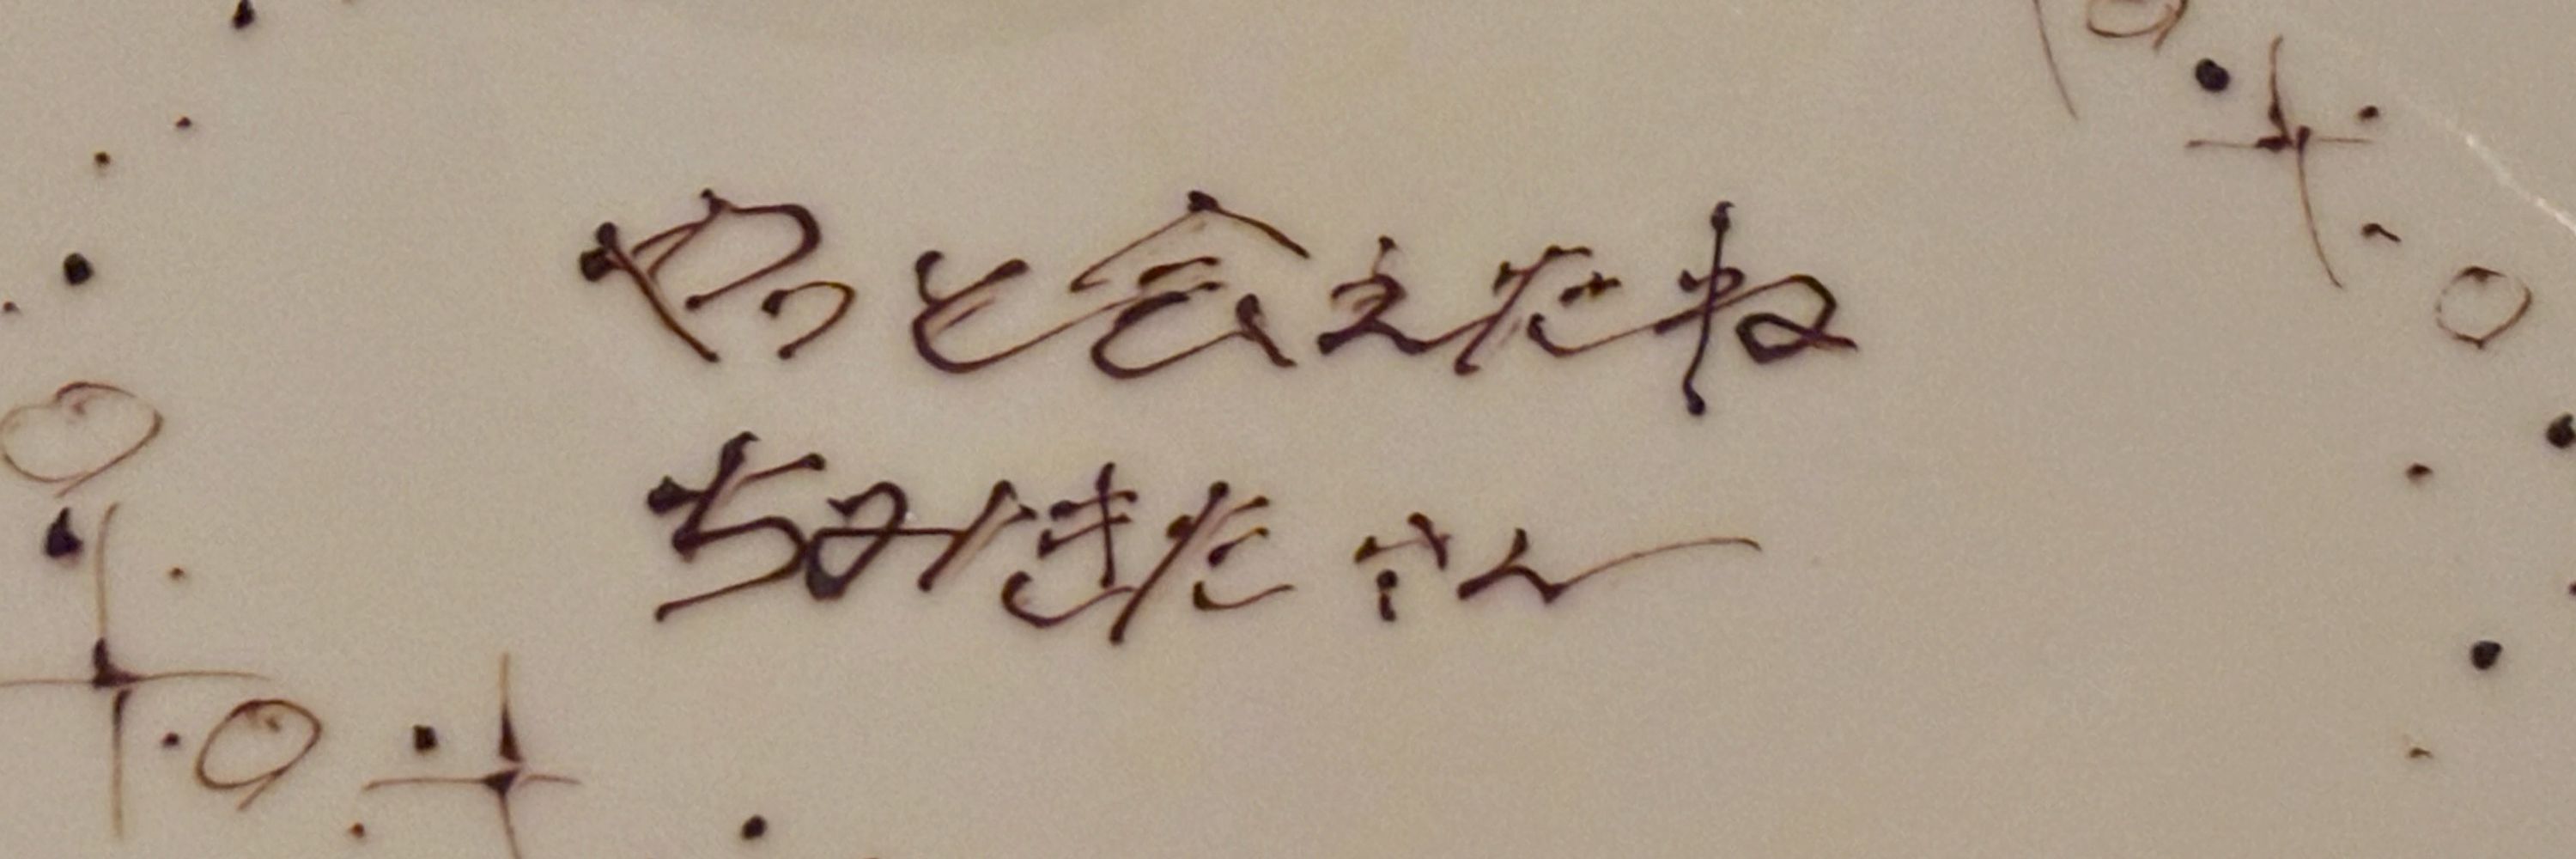 やっと会えたね
ちみきたさん